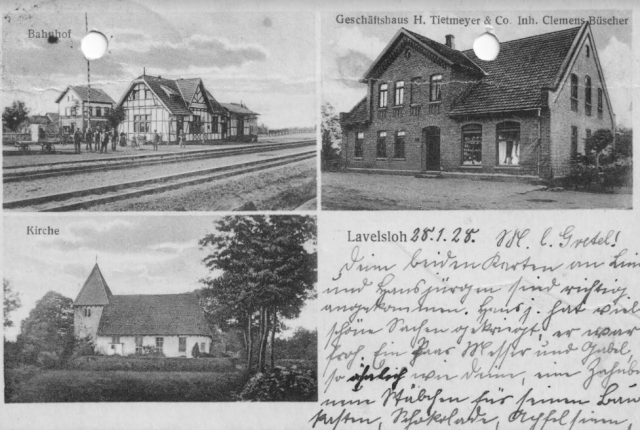 Bahnhof
Geschäftshaus H. Tietmeyer & Co. Inh. Clemens Büscher
Kirche
Lavelsloh 28.1.28. M. l. Gretel!
Deine beiden Karten an
und Hansjürgen sind richtig
angekommen. Hansj. hat viele
schöne Sachen gekriegt, er war
froh. Ein Paar Messer und Gabel,
so ähnlich wie Deine, eine
neue Stäbchen für seinen Bau
kasten, Schokolade, Apfelsinen,